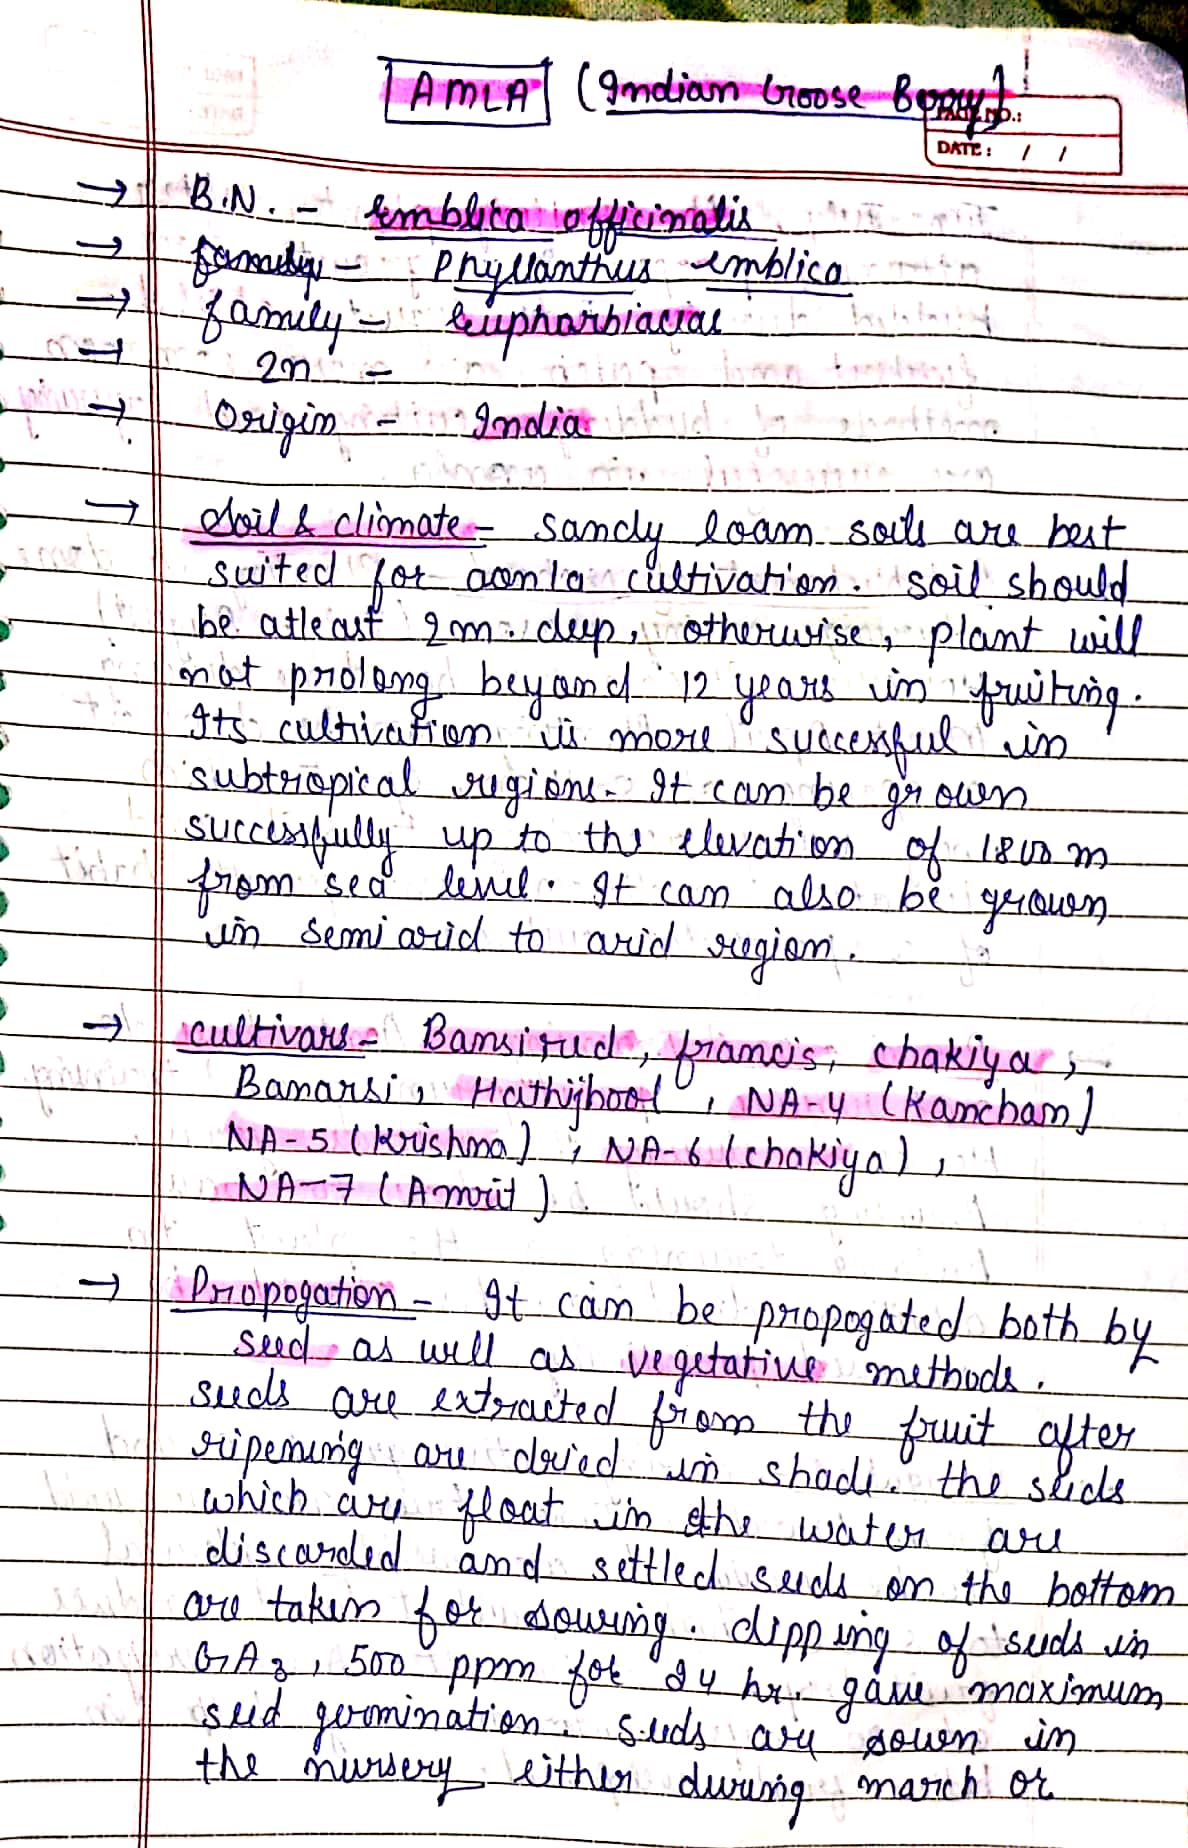 AMLA (Indian Goose Berry)
PAGE NO.:
DATE: / /
→ B.N. - Emblica officinalis
→ family - Phyllanthus emblica
→ family - Eupharbiaciae
→ 2n -
→ Origin - India
→ Soil & climate - sandy loam soils are best
suited for aonla cultivation. soil should
be atleast 2m. deep, otherwise, plant will
not prolong beyond 12 years in fruiting.
Its cultivation is more successful in
subtropical regions. It can be grown
successfully up to the elevation of 1800 m
from sea level. It can also be grown
in semi arid to arid region.
→ cultivars - Bansi red, francis, chakiya,
Banarsi, Hathijhool, NA-4 (Kancham)
NA-5 (Krishna), NA-6 (chakiya),
NA-7 (Amrit)
→ Propogation - It can be propogated both by
seed as well as vegetative methods.
seeds are extracted from the fruit after
ripening are dried in shade. the seeds
which are float in the water are
discarded and settled seeds on the bottom
are taken for sowing. dipping of seeds in
GA3, 500 ppm for 24 hr. gave maximum
seed germination. seeds are sown in
the nursery either during march or